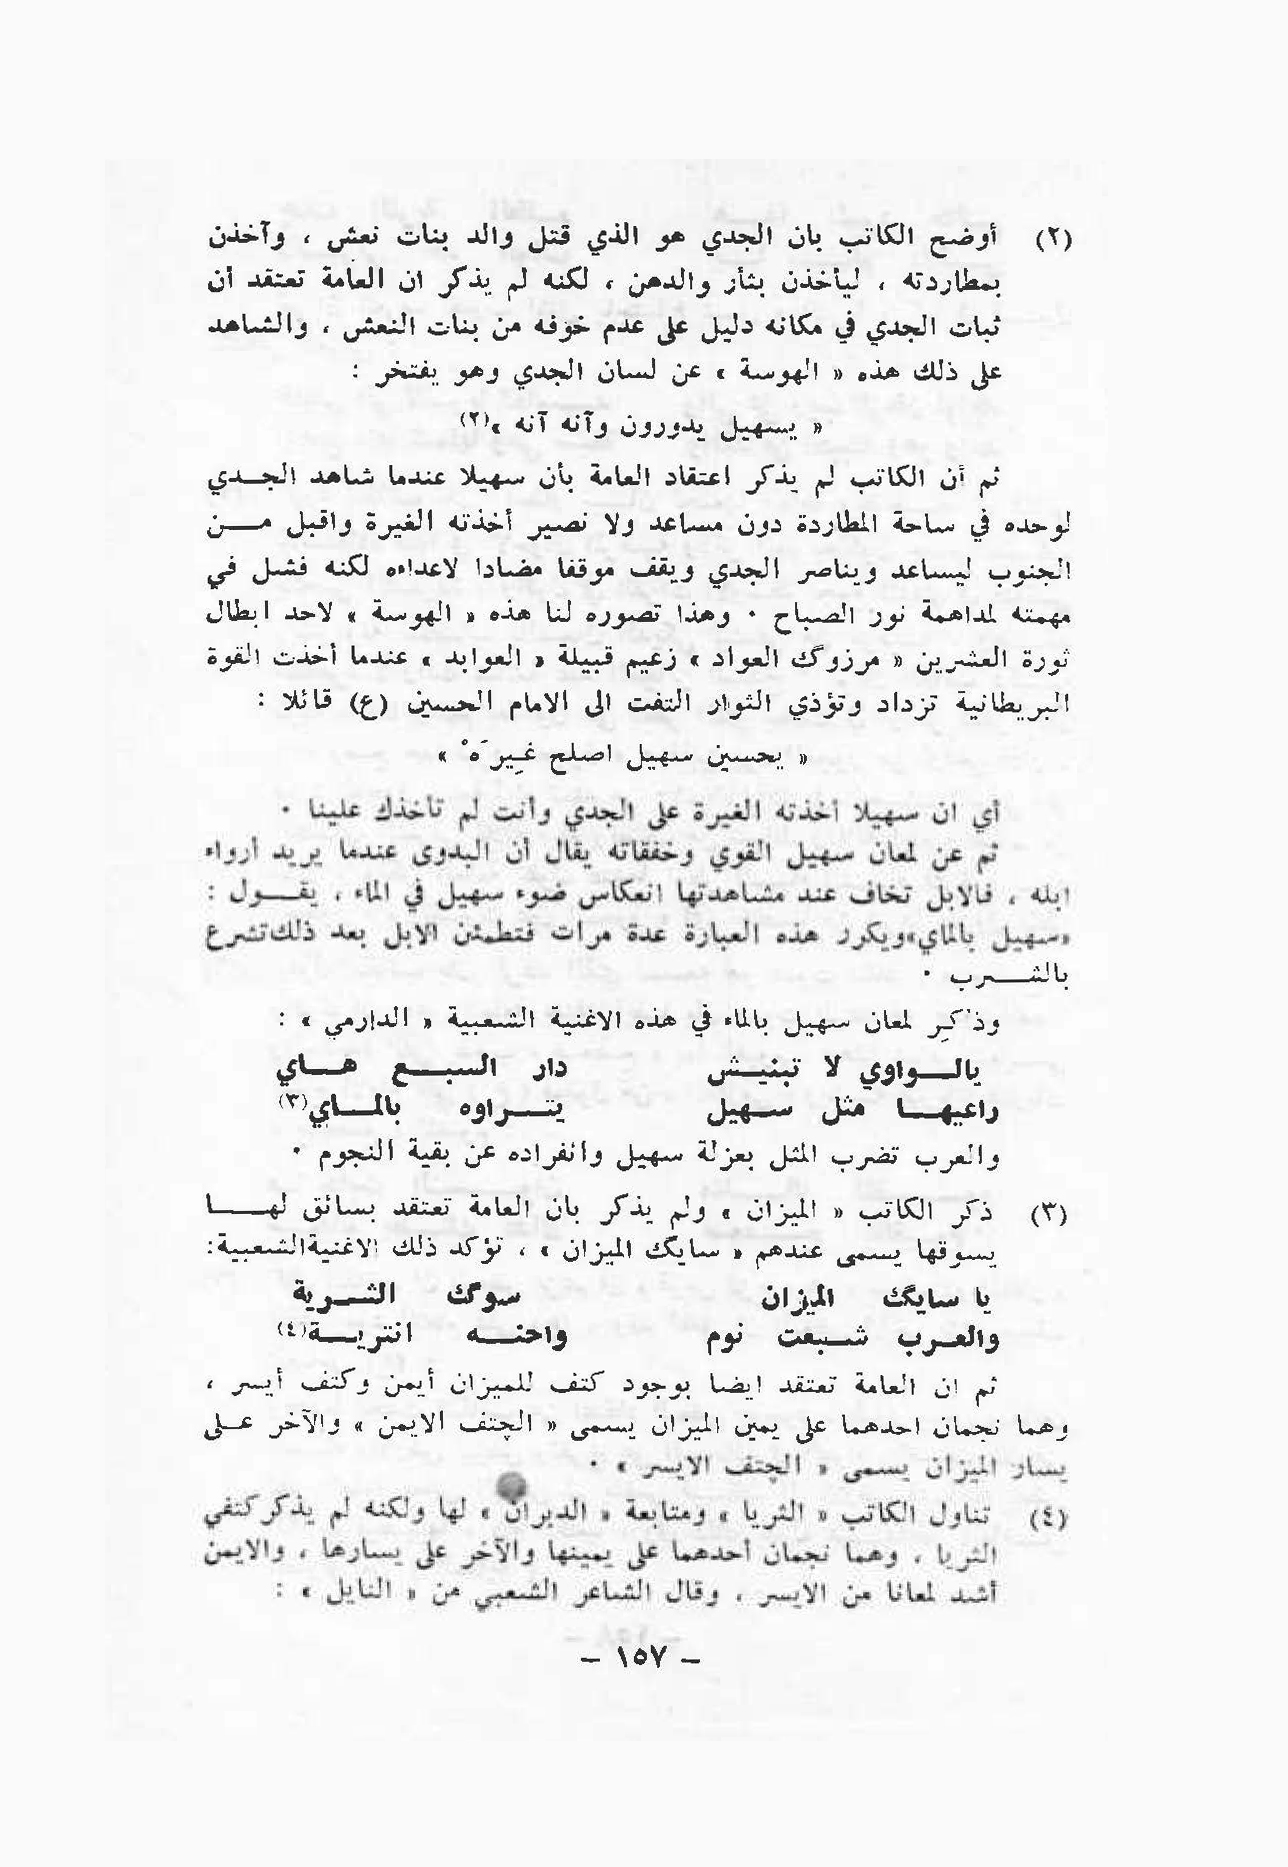 (٢) أوضح الكاتب بان الجدي هو الذي قتل والد بنات نعش ، وآخذن
بمطاردته ، ليأخذن بثأر والدهن ، لكنه لم يذكر ان العامة تعتقد أن
ثبات الجدي في مكانه دليل على عدم خوفه من بنات النعش ، والشاهد
على ذلك هذه « الهوسة » عن لسان الجدي وهو يفتخر :
« يسهيل يدورون وآنه آنه »(٢)
ثم أن الكاتب لم يذكر اعتقاد العامة بأن سهيلا عندما شاهد الجدي
لوحده في ساحة المطاردة دون مساعد ولا نصير أخذته الغيرة واقبل من
الجنوب ليساعد ويناصر الجدي ويقف موقفا مضادا لاعداءه لكنه فشل في
مهمته لمداهمة نور الصباح . وهذا تصوره لنا هذه « الهوسة » لاحد ابطال
ثورة العشرين « مرزوگ العواد » زعيم قبيلة « العوابد » عندما أخذت القوة
البريطانية تزداد وتؤذي الثوار التفت الى الامام الحسين (ع) قائلا :
« يحسين سهيل اصلح غِيرَهْ »
أي ان سهيلا أخذته الغيرة على الجدي وأنت لم تأخذك علينا .
ثم عن لمعان سهيل القوي وخفقاته يقال أن البدوى عندما يريد أرواء
ابله ، فالابل تخاف عند مشاهدتها انعكاس ضوء سهيل في الماء ، يقول :
«سهيل بالماي»ويكرر هذه العبارة عدة مرات فتطمئن الابل بعد ذلك تشرع
بالشرب .
وذُكِر لمعان سهيل بالماء في هذه الاغنية الشعبية « الدارمي » :
يالواوي لا تبنيش دار السبع هاي
راعيها مثل سهيل يتراوه بالماي(٣)
والعرب تضرب المثل بعزلة سهيل وانفراده عن بقية النجوم .
(٣) ذكر الكاتب « الميزان » ولم يذكر بان العامة تعتقد بسائق لها
يسوقها يسمى عندهم « سايگ الميزان » ، تؤكد ذلك الاغنيةالشعبية:
يا سايگ الميزان سوگ الثرية
والعرب شبعت نوم واحنه انترية(٤)
ثم ان العامة تعتقد ايضا بوجود كتف للميزان أيمن وكتف أيسر ،
وهما نجمان احدهما على يمين الميزان يسمى « الچتف الايمن » والآخر على
يسار الميزان يسمى « الچتف الايسر » .
(٤) تناول الكاتب « الثريا » ومتابعة « الدبران » لها ولكنه لم يذكر كتفي
الثريا ، وهما نجمان أحدهما على يمينها والآخر على يسارها ، والايمن
أشد لمعانا من الايسر ، وقال الشاعر الشعبي من « النايل » :
– ١٥٧ –